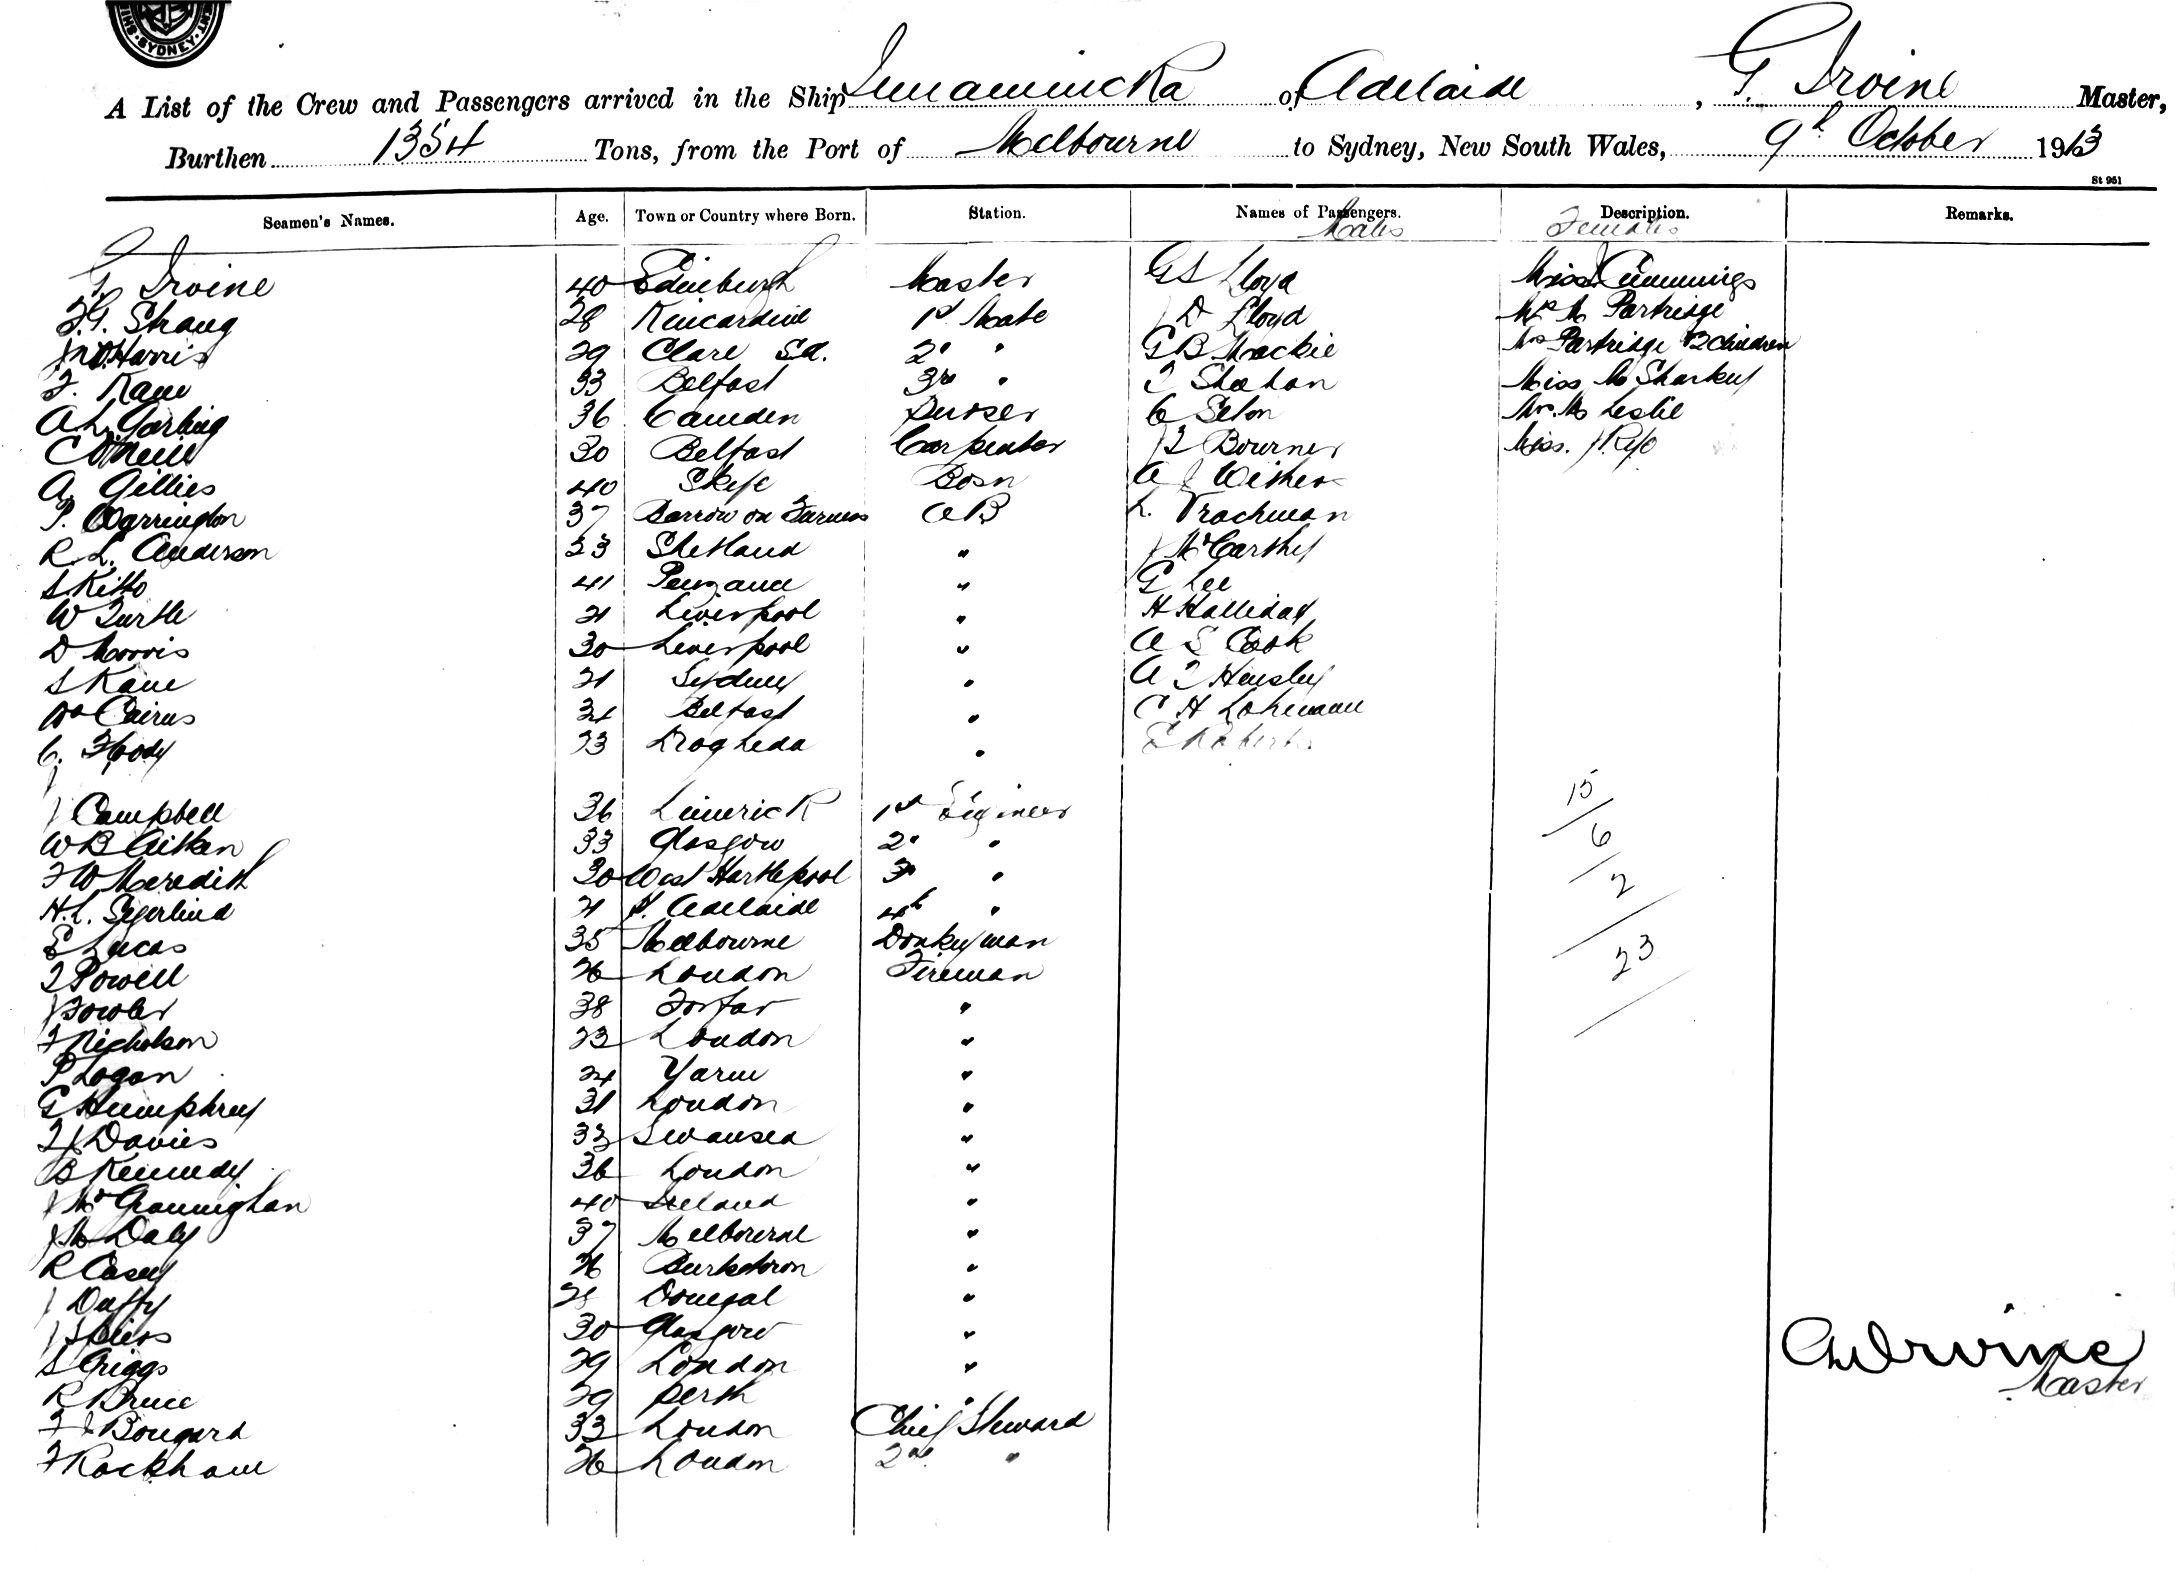 SYDNEY
A List of the Crew and Passengers arrived in the Ship Innamincka of Adelaide, G. Irvine Master,
Burthen 1354 Tons, from the Port of Melbourne to Sydney, New South Wales, 9th October 1913
St 951
Seamen's Names. Age. Town or Country where Born. Station. Names of Passengers. Description. Remarks.
Males Females
G. Irvine 40 Edinburgh Master G S Lloyd Miss Cummings
F.G. Strang 28 Kincardine 1st Mate D Lloyd Mr M Partridge
Harris 29 Clare Sa. 2 " G B Mackie Mrs Partridge 2 children
F. Kane 33 Belfast 3rd " T Sheehan Miss M Sharkey
A L Garling 36 Camden Purser C Selon Mrs M Leslie
C O'Neill 30 Belfast Carpenter J T Bourner Miss J Rye
A. Gillies 40 Skye Bosn A J Withers
P. Warrington 37 Barrow on Furness AB L. Trachman
R. L. Anderson 23 Shetland " J McCarthy
S Kitto 41 Penzance " G Lee
W Turtle 21 Liverpool " H Halliday
D Morris 30 Liverpool " A S Cook
S Kane 21 Sydney " A T Hensley
Wm Cairns 34 Belfast " C H Lohmann
C. Hoody 23 Drogheda " E Roberts
J Campbell 36 Limerick 1st Engineer 15
W B Aitken 33 Glasgow 2 " 6
F W Meredith 30 West Hartlepool 3 " 2
H. L. Sijerlind 21 P. Adelaide 4th " 23
E Lucas 35 Melbourne Donkeyman
T Powell 26 London Fireman
J Fowler 38 Forfar "
F Nicholson 23 London "
P Logan 24 Yarm "
G Humphrey 31 London "
T J Davies 33 Swansea "
B Kennedy 36 London "
J McGrannighan 40 Ireland "
J M Daly 37 Melbourne "
R Casey 26 "
J Duffy Donegal "
30 Glasgow "
S Griggs 29 London "
R Bruce 29 Perth "
F J Bongard 33 London Chief Steward
F Rackham 26 London 2nd "
G Irvine
Master